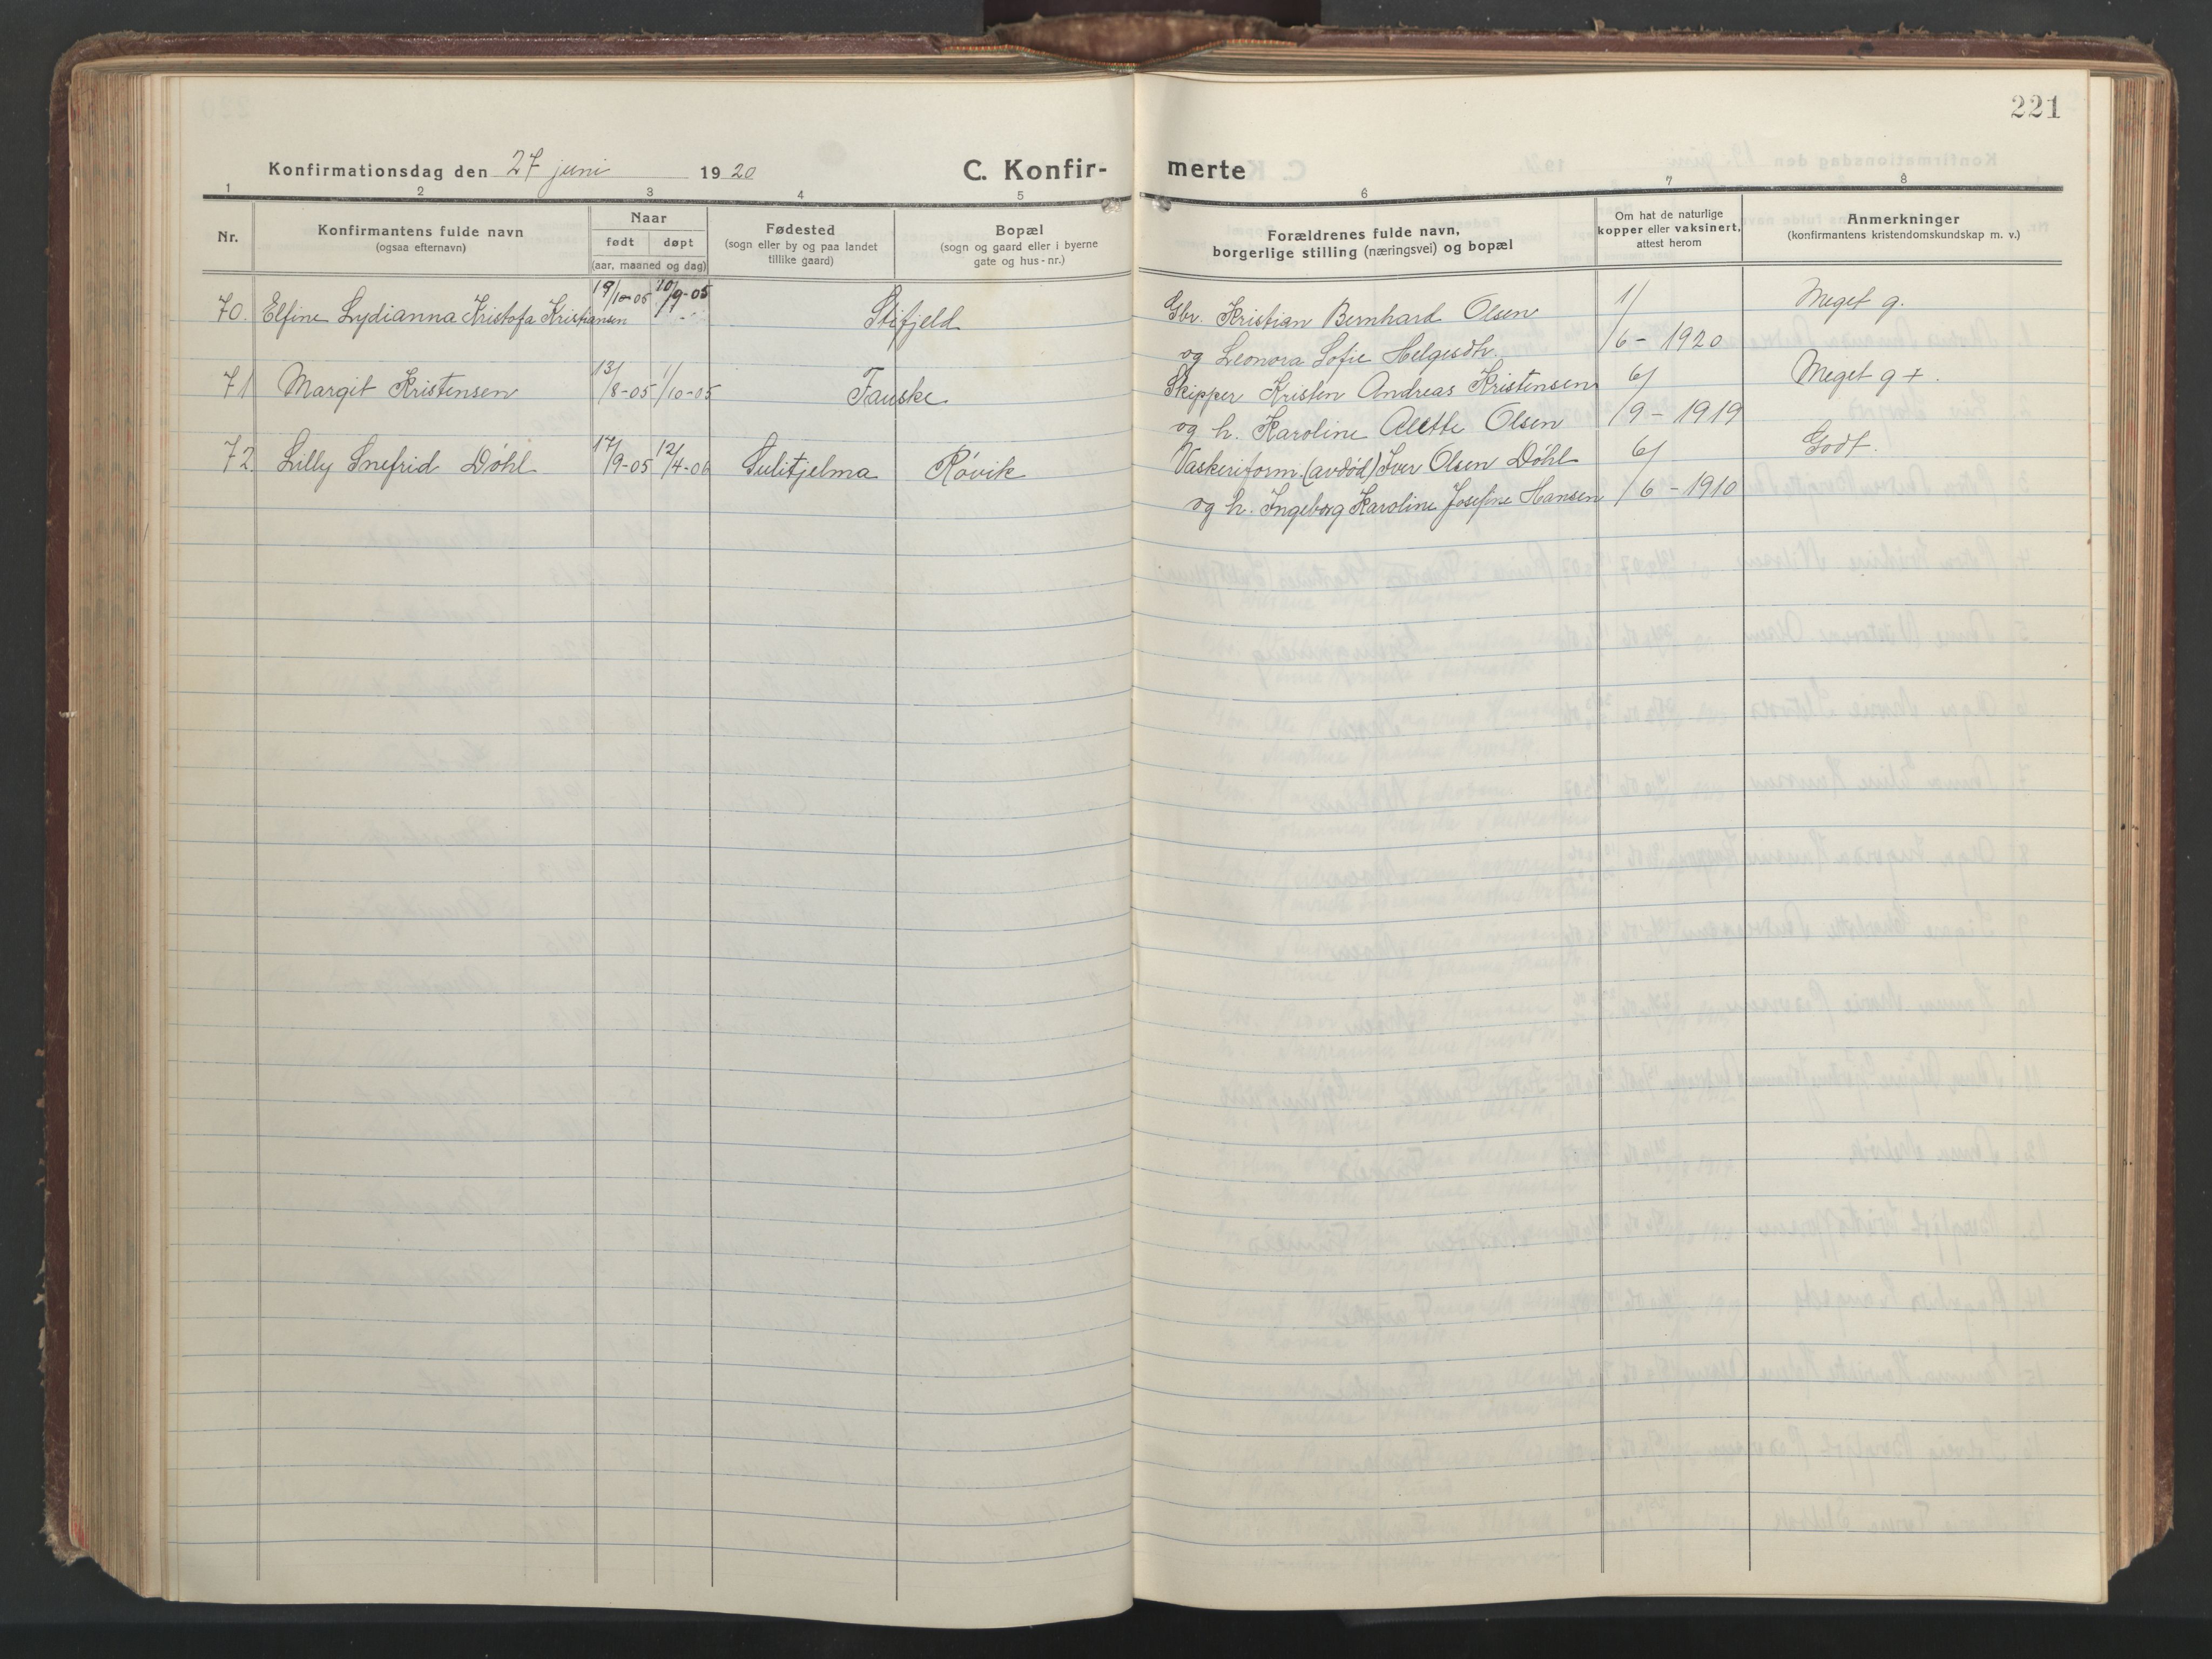 221
Konfirmationsdag den 27 juni 1920 C. Konfir- merte
1 2 3 4 5 6 7 8
Nr.
Konfirmantens fulde navn
(ogsaa efternavn)
Naar
født døpt
(aar, maaned og dag)
Fødested
(sogn eller by og paa landet
tillike gaard)
Bopæl
(sogn og gaard eller i byerne
gate og hus-nr.)
Forældrenes fulde navn,
borgerlige stilling (næringsvei) og bopæl
Om hat de naturlige
kopper eller vaksinert,
attest herom
Anmerkninger
(konfirmantens kristendomskundskap m. v.)
70. Elfine Lydianna Kristofa Kristiansen 10/9-05 Stifjeld Gbr. Kristian Bernhard Olsen 1/ Meget g.
og Leonora Sofie Helgesdtr. /6 - 1920
71 Margit Kristensen 13/8-05 1/10-05 Fauske Skipper Kristen Andreas Kristensen 6/ Meget g+.
og h. Karoline Alette Olsen /9 - 1919
72. Lilly Snefrid Döhl 17/9-05 12/4-06 Sulitjelma Røvik Vaskeriform. (avdöd) Iver Olsen Döhl 6/ Godt.
og h. Ingeborg Karoline Josefine Hansen /6 - 1910